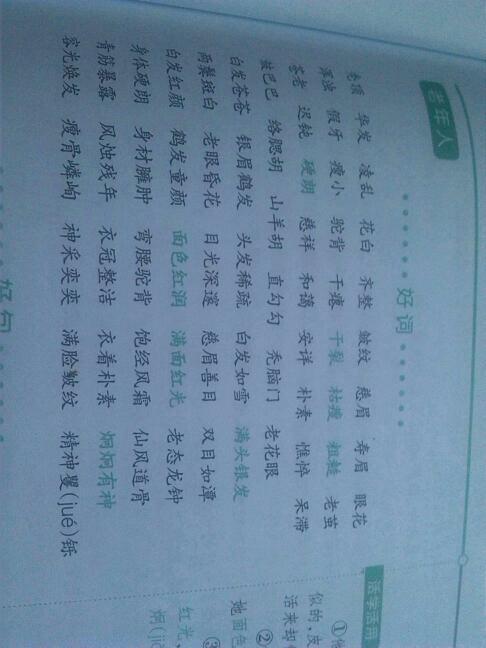 老年人
好词
华发 凌乱 花白 齐整 皱纹 慈眉 寿眉 眼花
浑浊 假牙 瘦小 驼背 干瘪 干裂 枯瘦 粗糙 老茧
苍老 迟钝 硬朗 慈祥 和蔼 安详 朴素 憔悴 呆滞
络腮胡 山羊胡 直勾勾 秃脑门 老花眼
白发苍苍 银眉鹤发 头发稀疏 白发如雪 满头银发
两鬓斑白 老眼昏花 目光深邃 慈眉善目 双目如潭
白发红颜 鹤发童颜 面色红润 满面红光 老态龙钟
身体硬朗 身材臃肿 弯腰驼背 饱经风霜 仙风道骨
青筋暴露 风烛残年 衣冠整洁 衣着朴素 炯炯有神
容光焕发 瘦骨嶙峋 神采奕奕 满脸皱纹 精神矍(jué)铄
好句
活学活用
①
似的,皮
活来却
②
她面色
③
红光
炯(ji